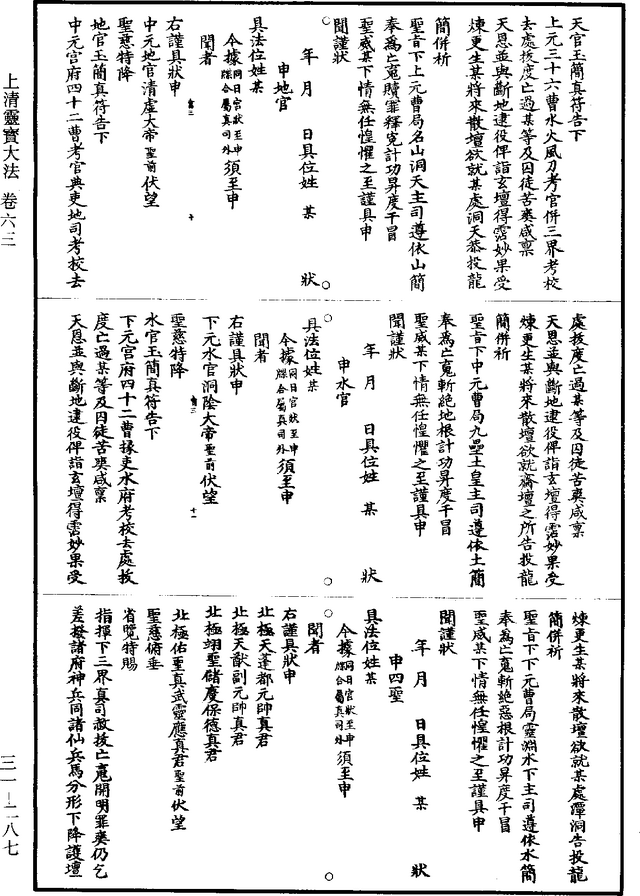 天官玉簡真符告下
上元三十六曹水火風刀考官併三界考校
去處拔度亡過某等及囚徒苦爽咸稟
天恩並與斷地逮役俾詣玄壇得霑妙果受
煉更生某將來散壇欲就某處洞天恭投龍
簡併祈
聖旨下上元曹局名山洞天主司遵依山簡
奉為亡䰟贖罪釋冤計功昇度干冒
聖威某下情無任惶懼之至謹具申
聞謹狀
年 月 日具位姓 某 狀
申地官
具法位姓某
今據同日官狀至申牒合屬真司外須至申
聞者
右謹具狀申
中元地官清虛大帝聖前伏望
聖慈特降
地官玉簡真符告下
中元宮府四十二曹考官典吏地司考校去
處拔度亡過某等及囚徒苦爽咸稟
天恩並與斷地逮役俾詣玄壇得霑妙果受
煉更生某將來散壇欲就齋壇之所告投龍
簡併祈
聖旨下中元曹局九壘土皇主司遵依土簡
奉為亡䰟斬絕地根計功昇度干冒
聖威某下情無任惶懼之至謹具申
聞謹狀
年 月 日具位姓 某 狀
申水官
具法位姓某
今據同日官狀至申牒合屬真司外須至申
聞者
右謹具狀申
下元水官洞陰大帝聖前伏望
聖慈特降
水官玉簡真符告下
下元宮府四十二曹掾吏水府考校去處拔
度亡過某等及囚徒苦爽咸稟
天恩並與斷地逮役俾詣玄壇得霑妙果受
煉更生某將來散壇欲就某處潭洞告投龍
簡併祈
聖旨下下元曹局靈淵水下主司遵依水簡
奉為亡䰟斬絕惡根計功昇度干冒
聖威某下情無任惶懼之至謹具申
聞謹狀
年 月 日具位姓 某 狀
申四聖
具法位姓某
今據同日官狀至申牒合屬真司外須至申
聞者
右謹具狀申
北極天蓬都元帥真君
北極天猷副元帥真君
北極翊聖儲慶保德真君
北極佑聖真武靈應真君聖前伏望
聖慈俯垂
省覽特賜
指揮下三界真司赦拔亡䰟開明罪爽仍乞
差撥諸府神兵同諸仙兵馬分形下降護壇
上清靈寶大法 卷六三
三一-二八七